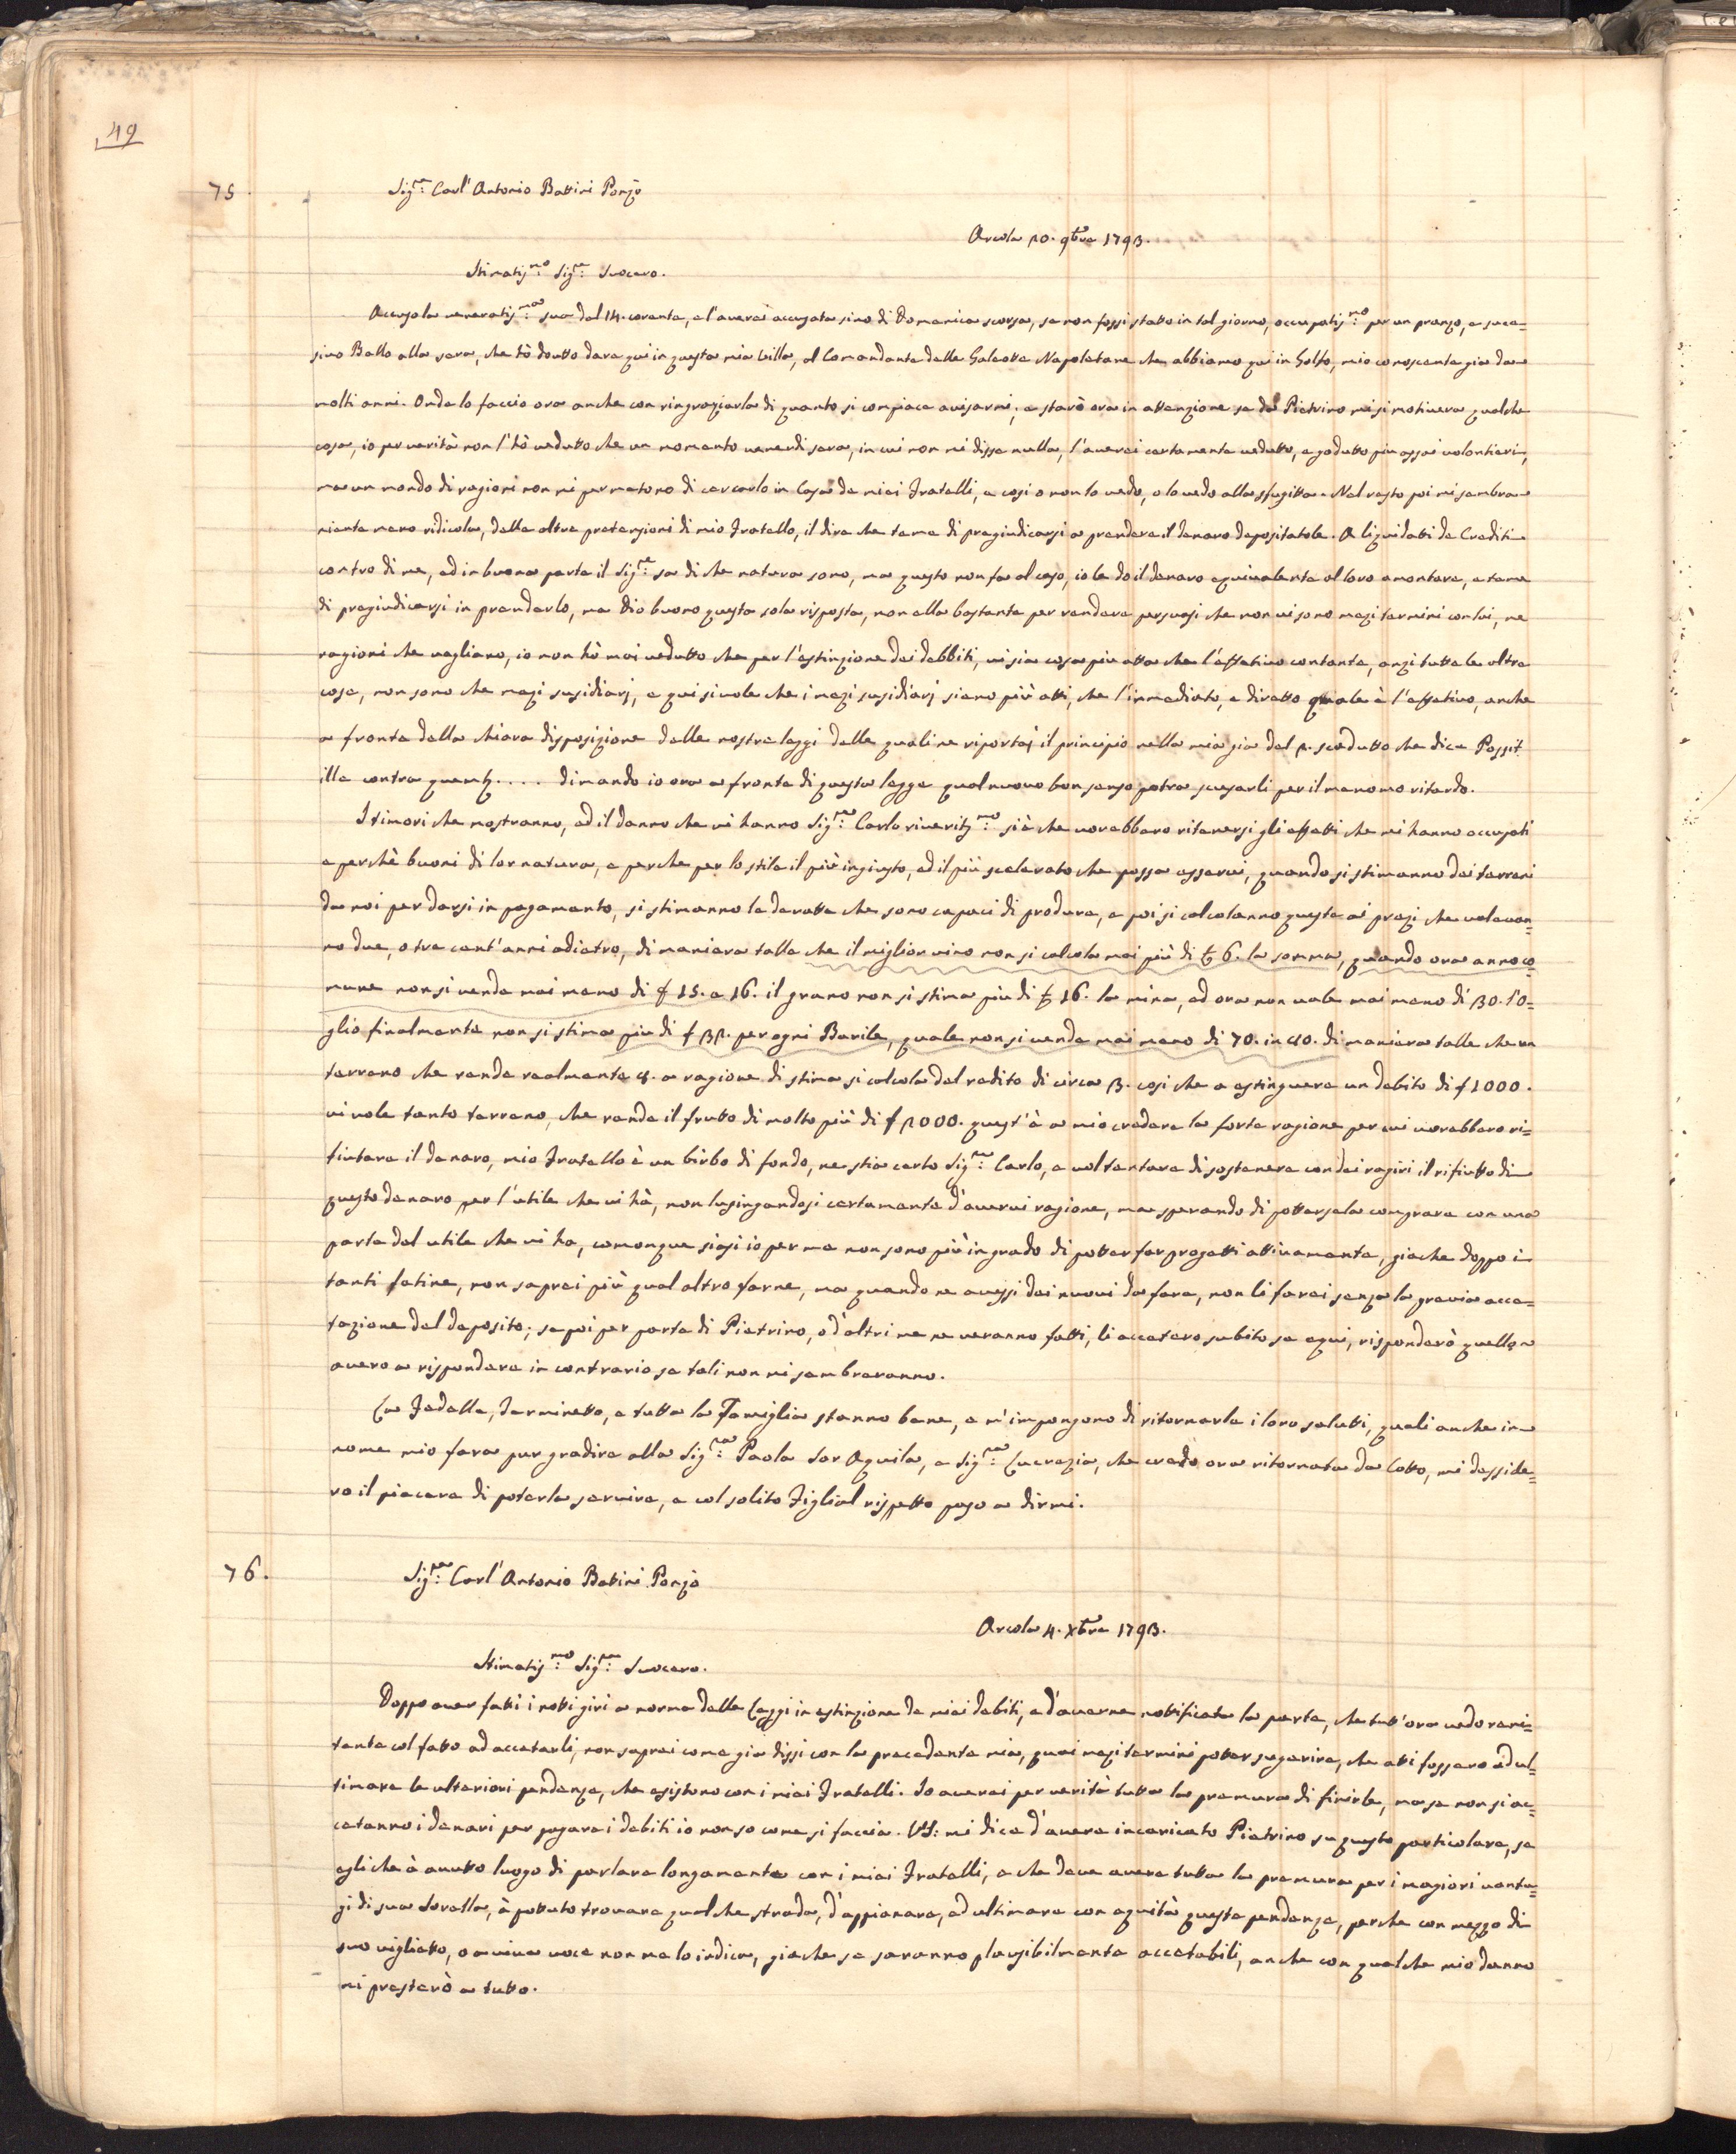 49
75.
Sig.re Carl'Antonio Battini Ponzò
Arcola 20. 9bre 1793.
Stimatis.mo Sig.re Suocero.
Accuso la veneratis.ma sua del 14. corente, e l'averei accusata sino di Domenica scorsa, se non fossi stato in tal giorno, occupatis.mo per un pranzo, e suce=
sivo Ballo alla sera, che hò dovuto dare qui in questa mia Villa, al Comandante delle Galeotte Napoletane che abbiamo qui in Golfo, mio conoscente gia da
molti anni. Onde lo faccio ora anche con ringraziarla di quanto si compiace avisarmi, e starò ora in attenzione se da Pietrino mi si motivera qualche
cosa, io per verità non l'hò veduto che un momento venerdi sera, in cui non mi disse nulla, l'averei certamente veduto, e goduto piu assai volontieri,
ma un mondo di ragioni non mi permetono di cercarlo in Casa de miei Fratelli, e cosi o non lo vedo, o lo vedo alla sfugitta. Nel resto poi mi sembra
niente meno ridicola, delle altre pretensioni di mio Fratello, il dire che teme di pregiudicarsi a prendere il denaro depositatole. A liquidati de Crediti
contro di me, ed in buona parte il Sig.re sa di che natura sono, ma questo non fa al caso, io le do il denaro equivalente al loro amontare, e teme
di pregiudicarsi in prenderlo, ma Dio buono questa sola risposta, non ella bastante per rendere persuasi che non vi sono mezi termini con lui, ne
ragioni che vagliano, io non hò mai veduto che per l'estinzione dei debbiti, vi sia cosa piu atta che l'effetivo contante, anzi tutte le altre
cose, non sono che mezi susidiarj, e qui si vole che i mezi susidiarj siano più atti, che l'immediato, e diretto quale è l'effetivo, anche
a fronte della chiara disposizione delle nostre leggi delle quali ne riportai il principio nella mia gia del 2. scaduto che dice Possit
ille contra quem .... dimando io ora a fronte di questa legge qual nuovo bon senso potra scusarli per il menomo ritardo.
I timori che mostranno, ed il danno che vi hanno Sig.re Carlo riverit.mo si è che vorebbero ritenersi gli effetti che mi hanno occupati
e perchè buoni di lor natura, e perche per lo stile il più ingiusto, ed il più scelerato che possa esservi, quando si stimanno dei terreni
da noi per darsi in pagamento, si stimanno le derate che sono capaci di produre, e poi si calcolanno queste ai prezi che valevan=
no due, o tre cent'anni adietro, di maniera talle che il miglior vino non si calcola mai più di £ 6. la somma, quando ora anno co=
mune non si vende mai meno di £ 15. a 16. il grano non si stima piu di £ 16. la mina, ed ora non vale mai meno di 30. l'o=
glio finalmente non si stima piu di £ 32. per ogni Barile, quale non si vende mai meno di 70. in 80. di maniera talle che un
terreno che rende realmente 8. a ragione di stima si calcola del redito di circa 3. cosi che a estinguere un debito di £ 1000.
vi vole tanto terreno, che rende il frutto di molto più di £ 2000. quest'è a mio credere la forte ragione per cui vorebbero ri=
fiutare il denaro, mio Fratello è un birbo di fondo, ne stia certo Sig.re Carlo, e vol tentare di sostenere con dei ragiri il rifiutto di
questo denaro per l'utile che vi hà, non lusingandosi certamente d'avervi ragione, ma sperando di pottersela comprare con una
parte del utile che vi ha, comonque siasi io per me non sono più in grado di potter far progetti attivamente, giache doppo i
tanti fatine, non saprei più qual altro farne, ma quando ne avessi dei nuovi da fare, non li farei senza la previa acce=
tazione del deposito; se poi per parte di Pietrino, o d'altri me ne veranno fatti, li accetero subito se equi, risponderò quello
avero a rispondere in contrario se tali non mi sembreranno.
La Fedelle, Ferminetto, e tutta la Famiglia stanno bene, e m'impongono di ritornarle i loro saluti, quali anche in
nome mio fara pur gradire alla Sig.ra Paola Sor Aquila, e Sig.ra Lucrezia, che credo ora ritornata da Cotto, mi desside=
ro il piacere di poterla servire, e col solito Figlial rispetto paso a dirmi.
76.
Sig.re Carl'Antonio Batini Ponzò
Arcola 4. Xbre 1793.
Stimatis.mo Sig.re Suocero.
Doppo aver fatti i notti giri a norma delle Leggi in estinzione de miei debiti, e d'averne nottificata la parte, che tutt'ora vedo reni=
tente col fatto ad accetarli, non saprei come gia dissi con la precedente mia, quai mezi termini potter sugerire, che atti fossero ad ul=
timare le ulteriori pendenze, che esistono con i miei Fratelli. Io averei per verità tutta la premura di finirle, ma se non si ac=
cetanno i denari per pagare i debiti io non so come si faccia. VS: mi dice d'avere incaricato Pietrino su questo particolare, se
egli che à avutto luogo di parlare longamente con i miei Fratelli, e che deve avere tutta la premura per i magiori vanta=
gi di sua Sorella, à potuto trovare qualche strada, d'appianare, ed ultimare con equità queste pendenze, perche con mezzo di
suo viglietto, o a viva voce non me lo indica, giache se saranno plausibilmente accetabili, anche con qualche mio danno
mi presterò a tutto.